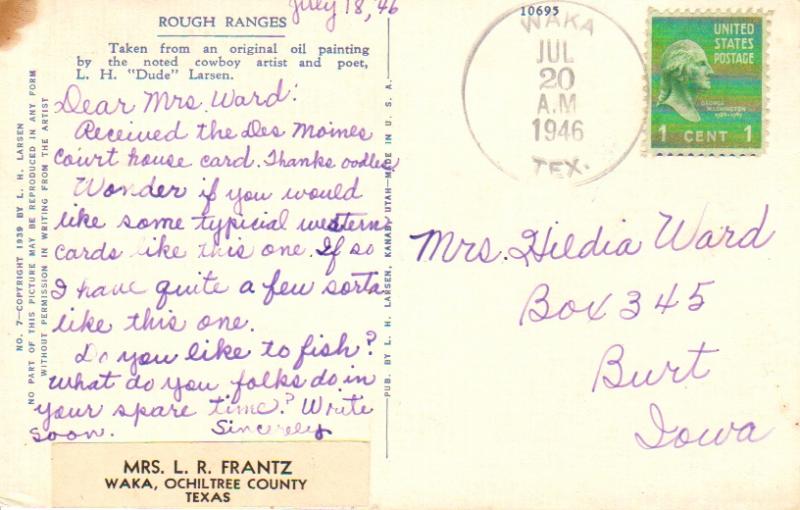 July 18, 46
ROUGH RANGES
Taken from an original oil painting
by the noted cowboy artist and poet,
L. H. "Dude" Larsen.
Dear Mrs. Ward:
Received the Des Moines
Court house card. Thanks oodles.
Wonder if you would
like some typicial western
cards like this one. If so
I have quite a few sorta
like this one.
Do you like to fish?
What do you folks do in
your spare time? Write
soon. Sincerely
MRS. L. R. FRANTZ
WAKA, OCHILTREE COUNTY
TEXAS
NO. 7—COPYRIGHT 1939 BY L. H. LARSEN
NO PART OF THIS PICTURE MAY BE REPRODUCED IN ANY FORM
WITHOUT PERMISSION IN WRITING FROM THE ARTIST
PUB. BY L. H. LARSEN, KANAB, UTAH—MADE IN U. S. A.
10695
WAKA
JUL
20
A.M
1946
TEX.
UNITED
STATES
POSTAGE
GEORGE
WASHINGTON
1 CENT 1
Mrs. Hildia Ward
Box 345
Burt
Iowa